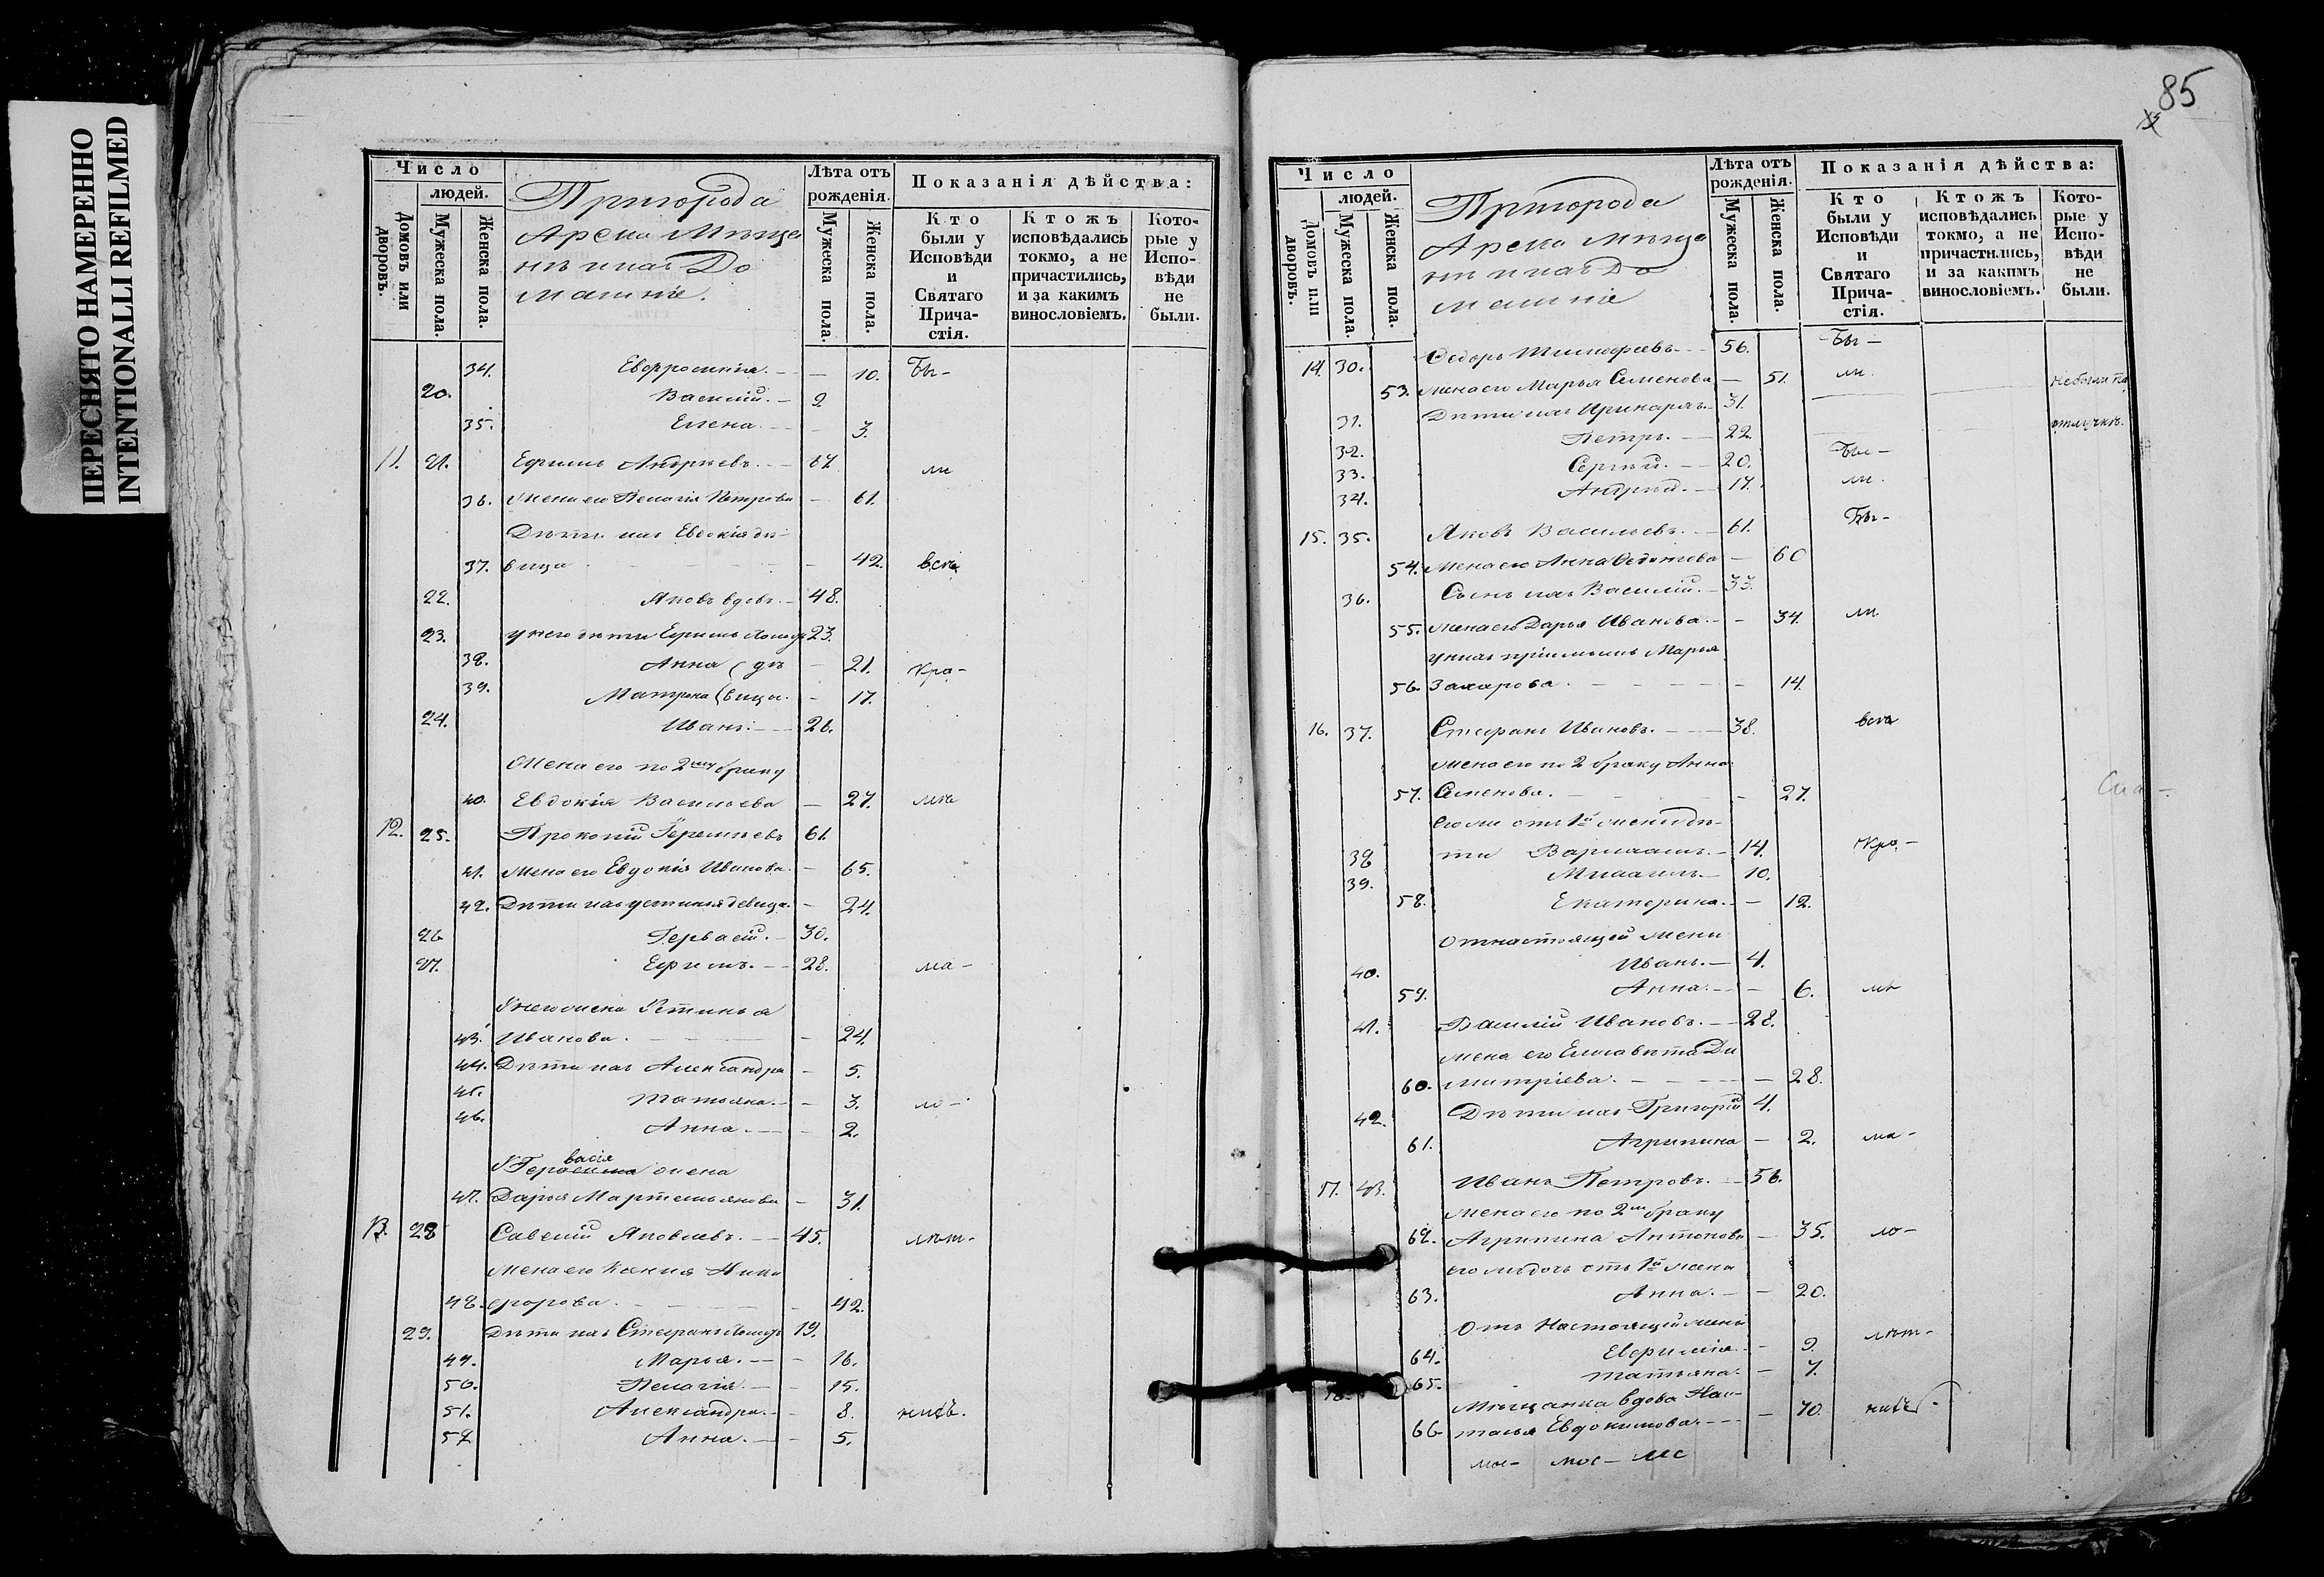 ПЕРЕСНЯТО НАМЕРЕННО
INTENTIONALLI REFILMED
Число
людей.
Домовъ или дворовъ.
Мужеска пола.
Женска пола.
Пригорода
Арска Мѣща
нѣ и ихъ До
машніе.
Лѣта отъ
рожденія.
Мужеска пола.
Женска пола.
Показанія дѣйства:
Кто
были у
Исповѣди
и
Святаго
Прича-
стія.
Ктожъ
исповѣдались
токмо, а не
причастились,
и за какимъ
винословіемъ.
Кото-
рые у
Испо-
вѣди
не
были.
34. Евфросинія. — — 10. Бы-
20. Василій. — 9
35. Елена. — — 3.
11. 21. Ефимъ Андреевъ. — 67 ли
36. Жена его Пелагія Петрова — 61.
Дѣти ихъ Евдокія дѣ-
37. вица — 42. всѣ
22. Яковъ вдовъ. — 48.
23. у него дѣти Ефимъ Холостъ 23.
38. Анна (дѣ — 21. Кро-
39. Матрона (вицы. — 17.
24. Иванъ. — 26.
Жена его по 2му браку
40. Евдокія Васильева — 27. мѣ
12. 25. Прокопій Іеремѣевъ 61.
41. Жена его Евдокія Иванова. — 65.
42. Дѣти ихъ устинья девица. — 24.
26 Гервасій. — 30.
27. Ефимъ. — 28. ма-
У него жена Устинья
43. Иванова. — 24.
44. Дѣти ихъ Александра — 5.
45. татьяна. — 3. ло-
46. Анна. — 2.
васія
У Гер жена
47. Дарья Мартемьянова — 31.
13. 28 Савелій Яковлевъ. — 45. лѣт-
Жена его Ксенія Ники
48. форова. — 42.
29. Дѣти ихъ Стефанъ Холостъ 19.
49. Марья. — — 16.
50. Пелагія. — — 15.
51. Александра. — — 8. нихъ.
52 Анна. — — 5.
85
Число
людей.
Домовъ или дворовъ.
Мужеска пола.
Женска пола.
Пригорода
Арска мѣща
нѣ и ихъ До
машніе
Лѣта отъ
рожденія.
Мужеска пола.
Женска пола.
Показанія дѣйства:
Кто
были у
Исповѣди
и
Святаго
Прича-
стія.
Ктожъ
исповѣдались
токмо, а не
причастились,
и за какимъ
винословіемъ.
Кото-
рые у
Испо-
вѣди
не
были.
14. 30. Ѳедоръ Тимофеевъ. — 56. Бы-
53. жена его Марья Семенова — 51. ли. не были по
31. Дѣти ихъ Иринархъ. — 31. отлучкѣ.
32. Петръ. — 22.
33. Сергій. — 20. Бы-
34. Андрей. — 17. ли.
15. 35. Яковъ Васильевъ. — 61. Бы-
54. Жена его Анна — 60
36. Сынъ ихъ Василій. — 33.
55. жена его Дарья Иванова. — 34. ли
у нихъ пріемышъ Марья
56. Захарова. — 14.
16. 37. Стефанъ Ивановъ. — 38. всѣ
жена его по 2 браку Анна
57. Семенова. — 27.
его же отъ 1й жены дѣ-
38 ти Варлаамъ. — 14. Кро-
39. Мисаилъ. — 10.
58. Екатерина. — 12.
От настоящей жены
40. Иванъ. — 4.
59. Анна. — — 6. мѣ
41. Василій Ивановъ. — 28.
жена его Елисавета Ди
60. митріева. — 28.
42. Дѣти ихъ Григорій 4.
61. Агрипина — 2. ма-
17. 43. Иванъ Петровъ. — 56.
жена его по 2му браку
62. Агрипина Антонова — 35. ло-
его жъ дочь отъ 1й жены
63. Анна. — — 20.
Отъ Настоящей жены
64. Евфимія. — 9. лѣт-
65. татьяна. — 7.
18. Мѣщанка вдова Нас-
66 тасья Евдокимова. — 70. нихъ-